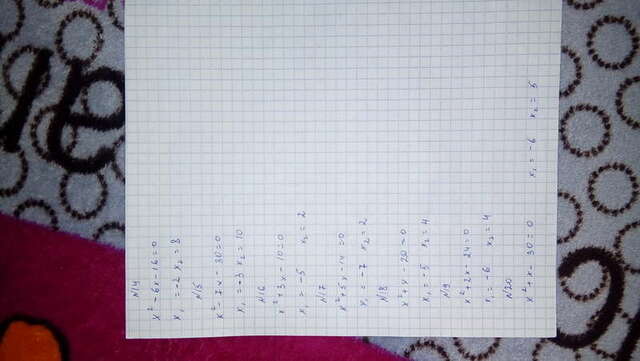 №14
x² - 6x - 16 = 0
x₁ = -2 x₂ = 8
№15
x² - 7x - 30 = 0
x₁ = -3 x₂ = 10
№16
x² + 3x - 10 = 0
x₁ = -5 x₂ = 2
№17
x² + 5x - 14 = 0
x₁ = -7 x₂ = 2
№18
x² + x - 20 = 0
x₁ = -5 x₂ = 4
№19
x² + 2x - 24 = 0
x₁ = -6 x₂ = 4
№20
x² + x - 30 = 0 x₁ = -6 x₂ = 5